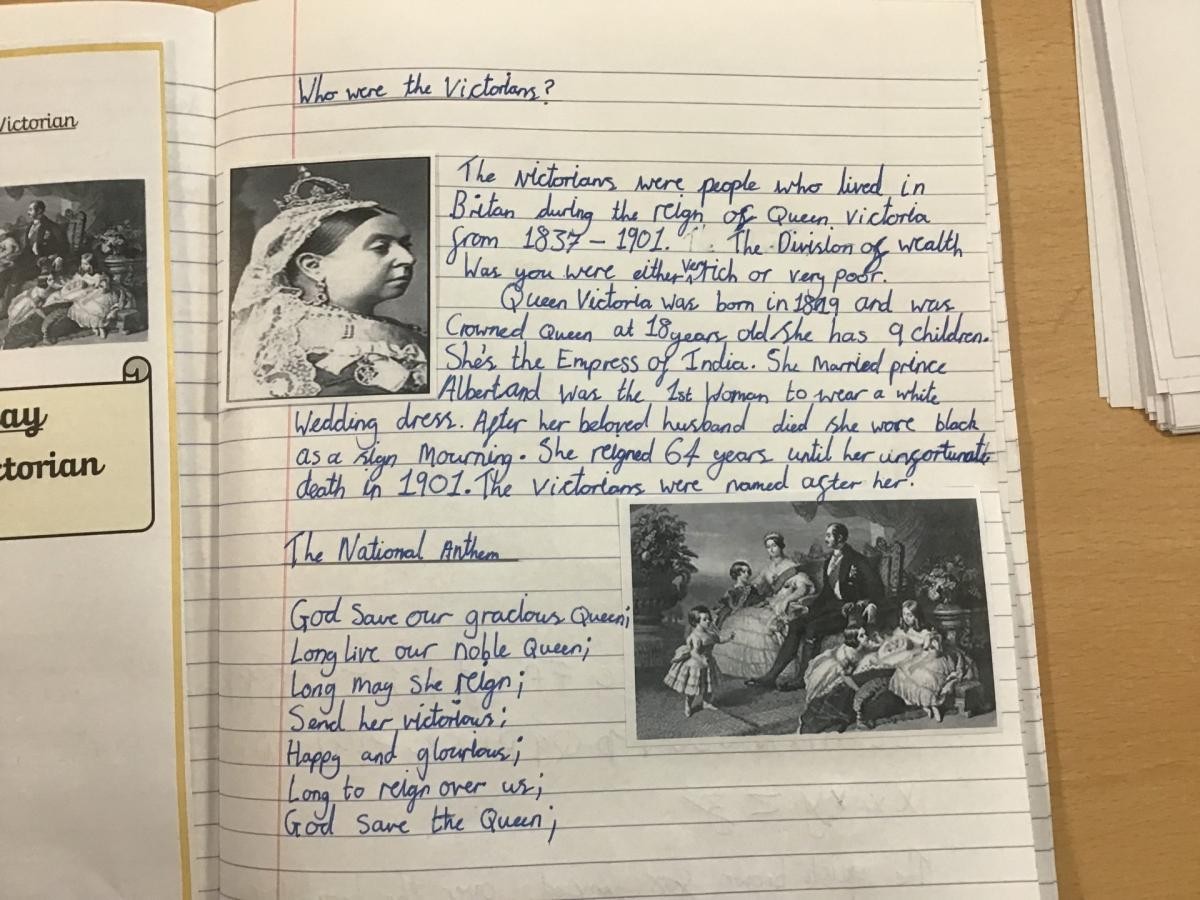 Victorian
ay
ctorian
Who were the Victorians?
The victorians were people who lived in
Britan during the reign of Queen victoria
from 1837 - 1901. The Division of wealth
Was you were either very rich or very poor.
Queen Victoria was born in 1819 and was
Crowned Queen at 18 years old she has 9 children.
She's the Empress of India. She Married prince
Albert and was the 1st Woman to wear a white
Wedding dress. After her beloved husband died she wore black
as a sign Mourning. She reigned 64 years until her unfortunate
death in 1901. The victorians were named after her.
The National Anthem
God Save our gracious Queen;
Long live our noble Queen;
Long may She reign;
Send her victorious;
Happy and glourious;
Long to reign over us;
God save the Queen;